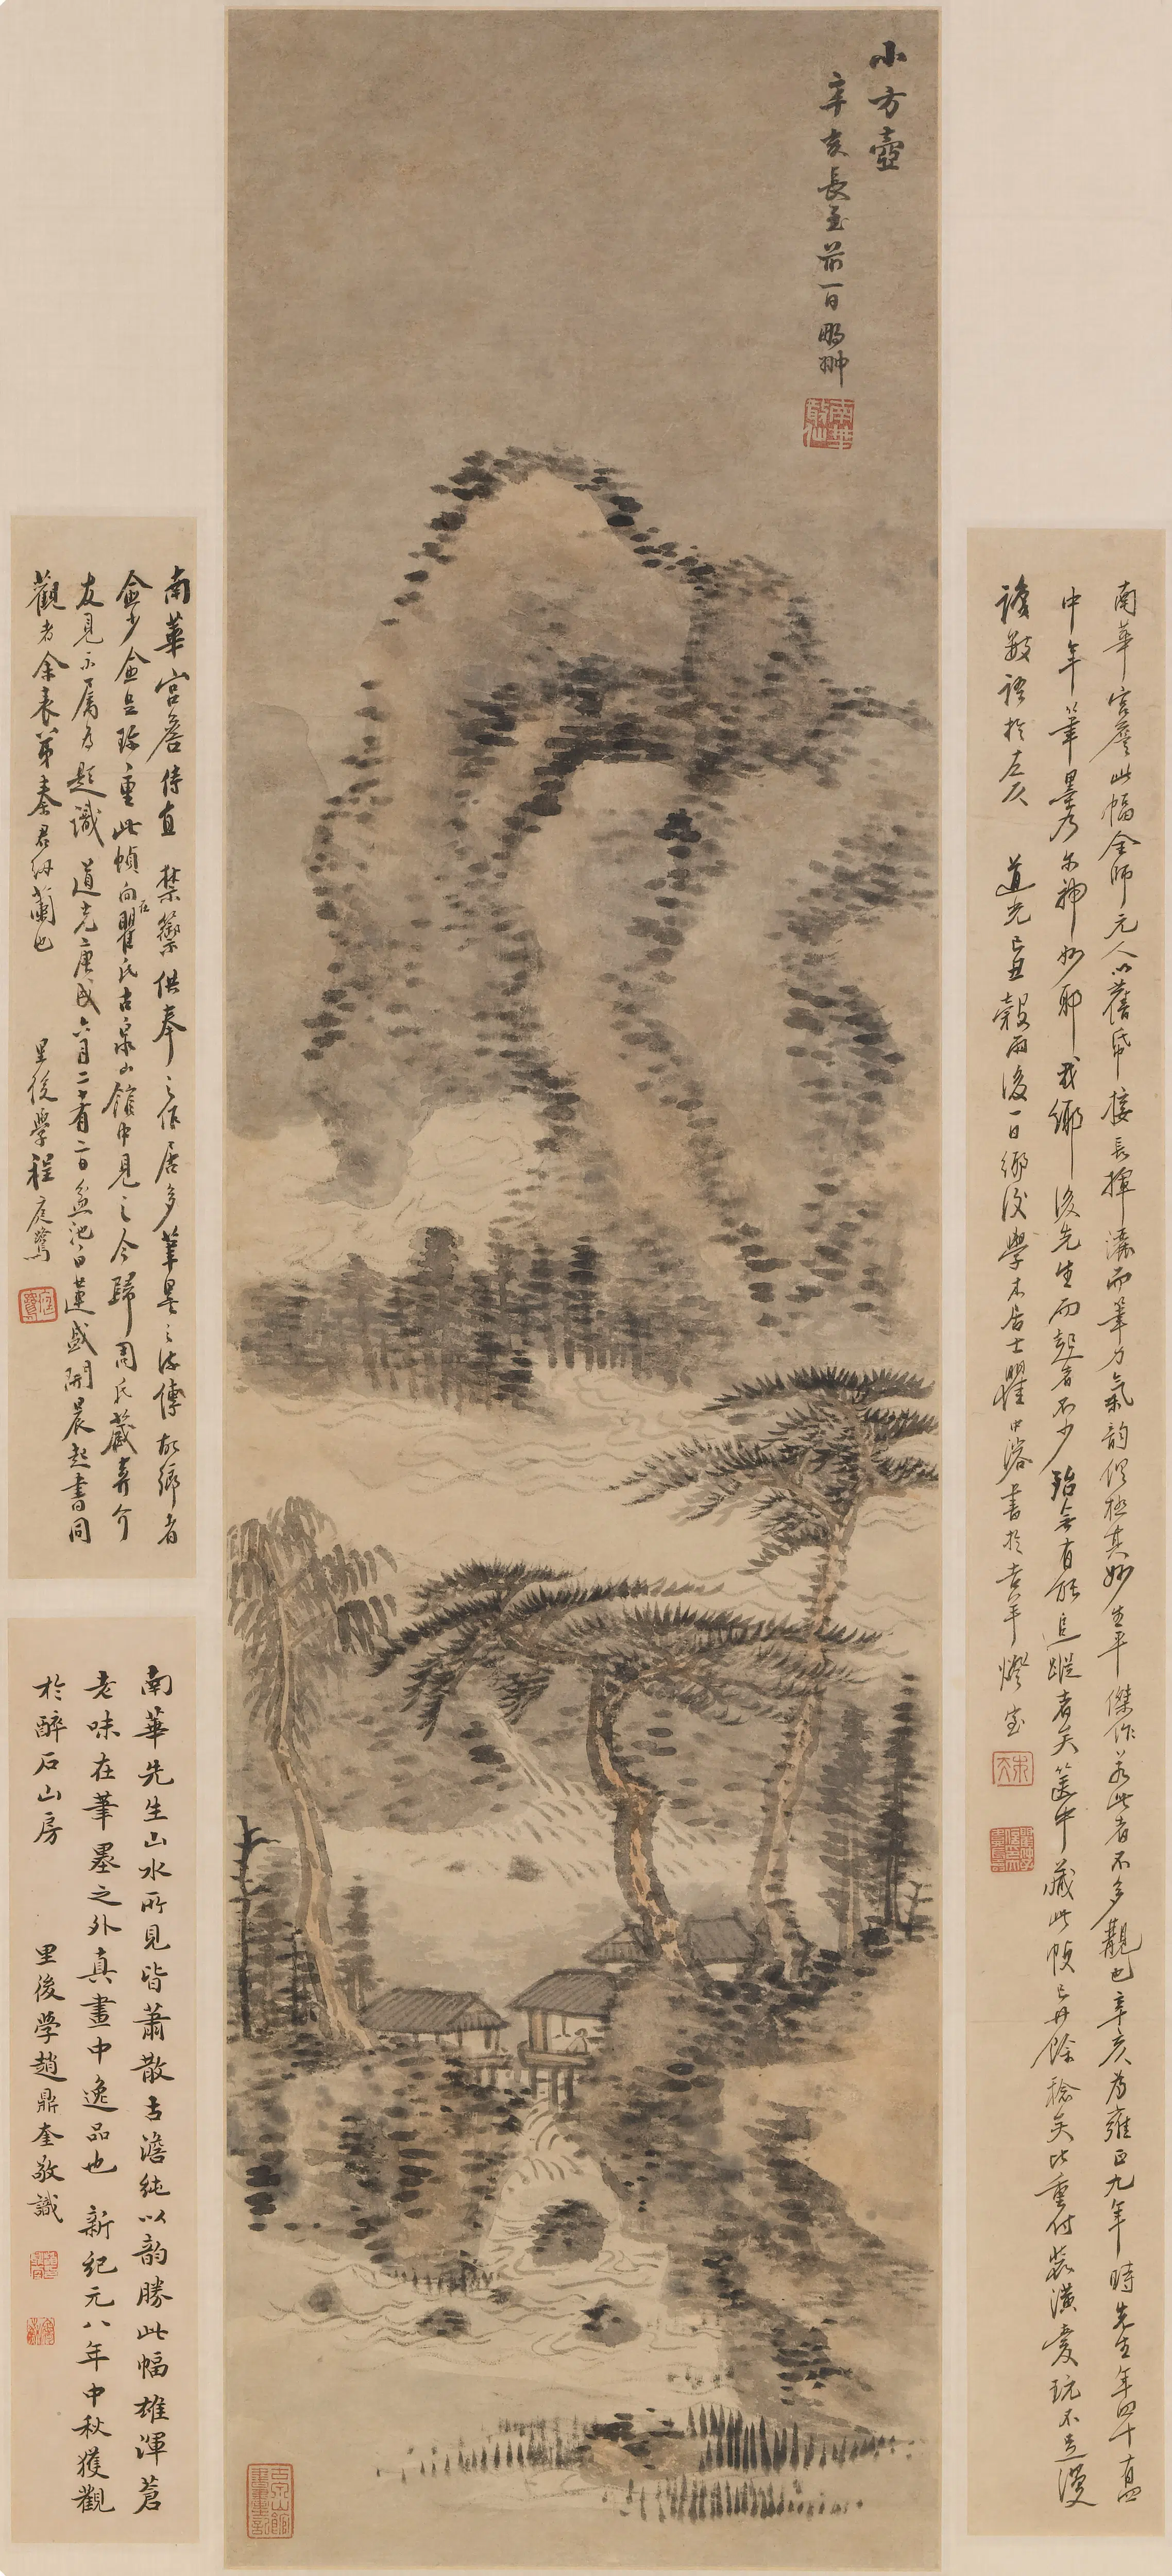 小方壺
辛亥長至前一日鵬翀
南華散仙
南華宮詹此幅全師元人以舊紙接長揮灑而筆力氣韵俱極其妙生平傑作若此者不多觀也辛亥為雍正九年時先生年四十有四
中年筆墨乃爾神妙耶我鄉後先生而起者不少殆無有能追蹤者矣篋中藏此幀已廿餘稔矣比重付裝潢愛玩不置漫
識數語於左方 道光己丑穀雨後一日鄉後學木居士瞿中溶書於吉平燈室
南華宮詹侍直 禁籞供奉之作居多筆墨之流傳故鄉者
尠少益足珍重此幀向在瞿氏古泉山館中見之今歸周氏藏弆介
友見示屬為題識 道光庚戌六月二十有二日盆池白蓮盛開晨起書同
觀者余表弟秦君紉蘭也 里後學程庭鷺
南華先生山水所見皆蕭散古澹純以韵勝此幅雄渾蒼
老味在筆墨之外真畫中逸品也 新紀元八年中秋獲觀
於醉石山房 里後學趙鼎奎敬識
古泉山館書畫記